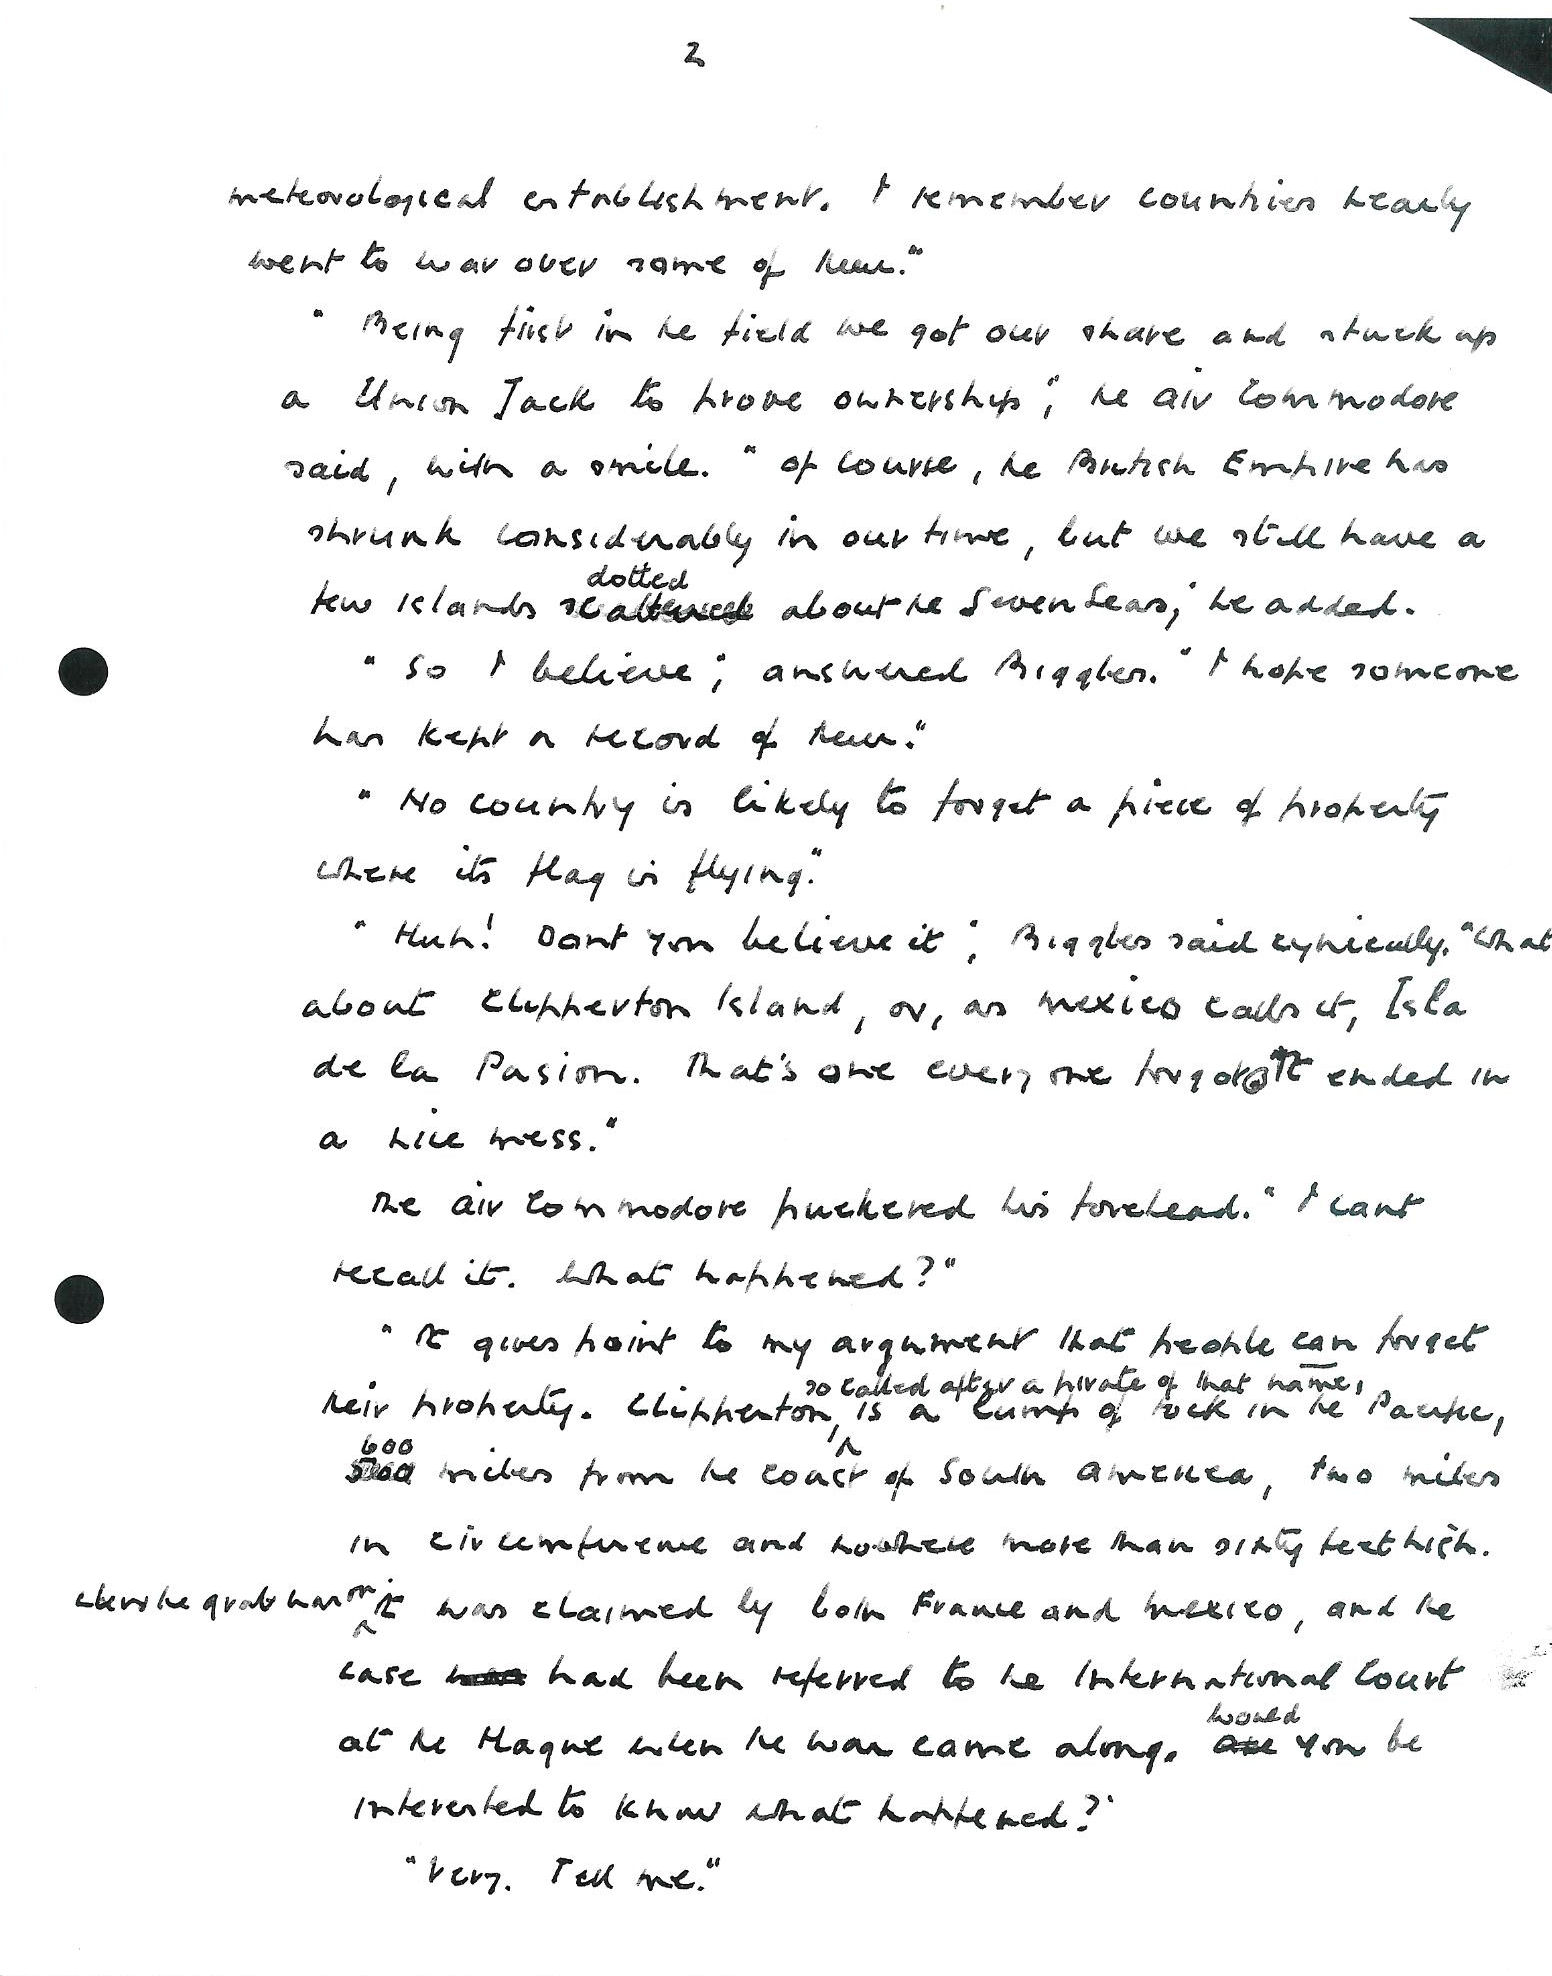 2
meteorological establishment. I remember countries nearly
went to war over some of them."
" Being first in the field we got our share and stuck up
a Union Jack to prove ownership", the air Commodore
said, with a smile. " Of course, the British Empire has
shrunk considerably in our time, but we still have a
dotted
few islands scattered about the Seven Seas," he added.
" So I believe", answered Biggles. " I hope someone
has kept a record of them."
" No country is likely to forget a piece of property
where its flag is flying."
" Huh! Dont you believe it", Biggles said cynically. "What
about Clipperton Island, or, as Mexico calls it, Isla
de la Pasion. That's one every one forgot. It ended in
a nice mess."
The air Commodore puckered his forehead. " I cant
recall it. What happened?"
" It gives point to my argument that people can forget
so called after a pirate of that name,
their property. Clipperton, is a lump of rock in the Pacific,
600
500 miles from the coast of South America, two miles
in circumference and nowhere more than sixty feet high.
When the grab was on it was claimed by both France and Mexico, and the
case was had been referred to the International Court
would
at the Hague when the war came along. are you be
interested to know what happened?"
"Very. Tell me."